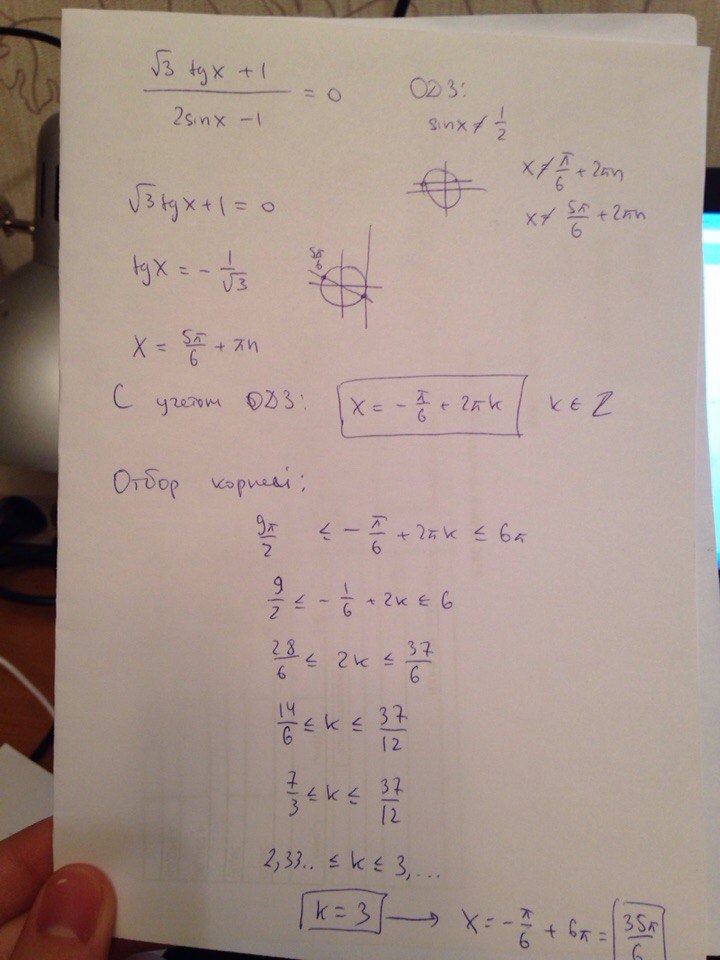 √3 tgx + 1 / 2sinx − 1 = 0
ОДЗ:
sinx ≠ 1/2
x ≠ π/6 + 2πn
x ≠ 5π/6 + 2πn
√3 tgx + 1 = 0
tgx = − 1/√3
5π/6
x = 5π/6 + πn
С учетом ОДЗ: x = − π/6 + 2πk k ∈ Z
Отбор корней:
9π/2 ≤ − π/6 + 2πk ≤ 6π
9/2 ≤ − 1/6 + 2k ≤ 6
28/6 ≤ 2k ≤ 37/6
14/6 ≤ k ≤ 37/12
7/3 ≤ k ≤ 37/12
2,33.. ≤ k ≤ 3,...
k = 3 → x = − π/6 + 6π = 35π/6